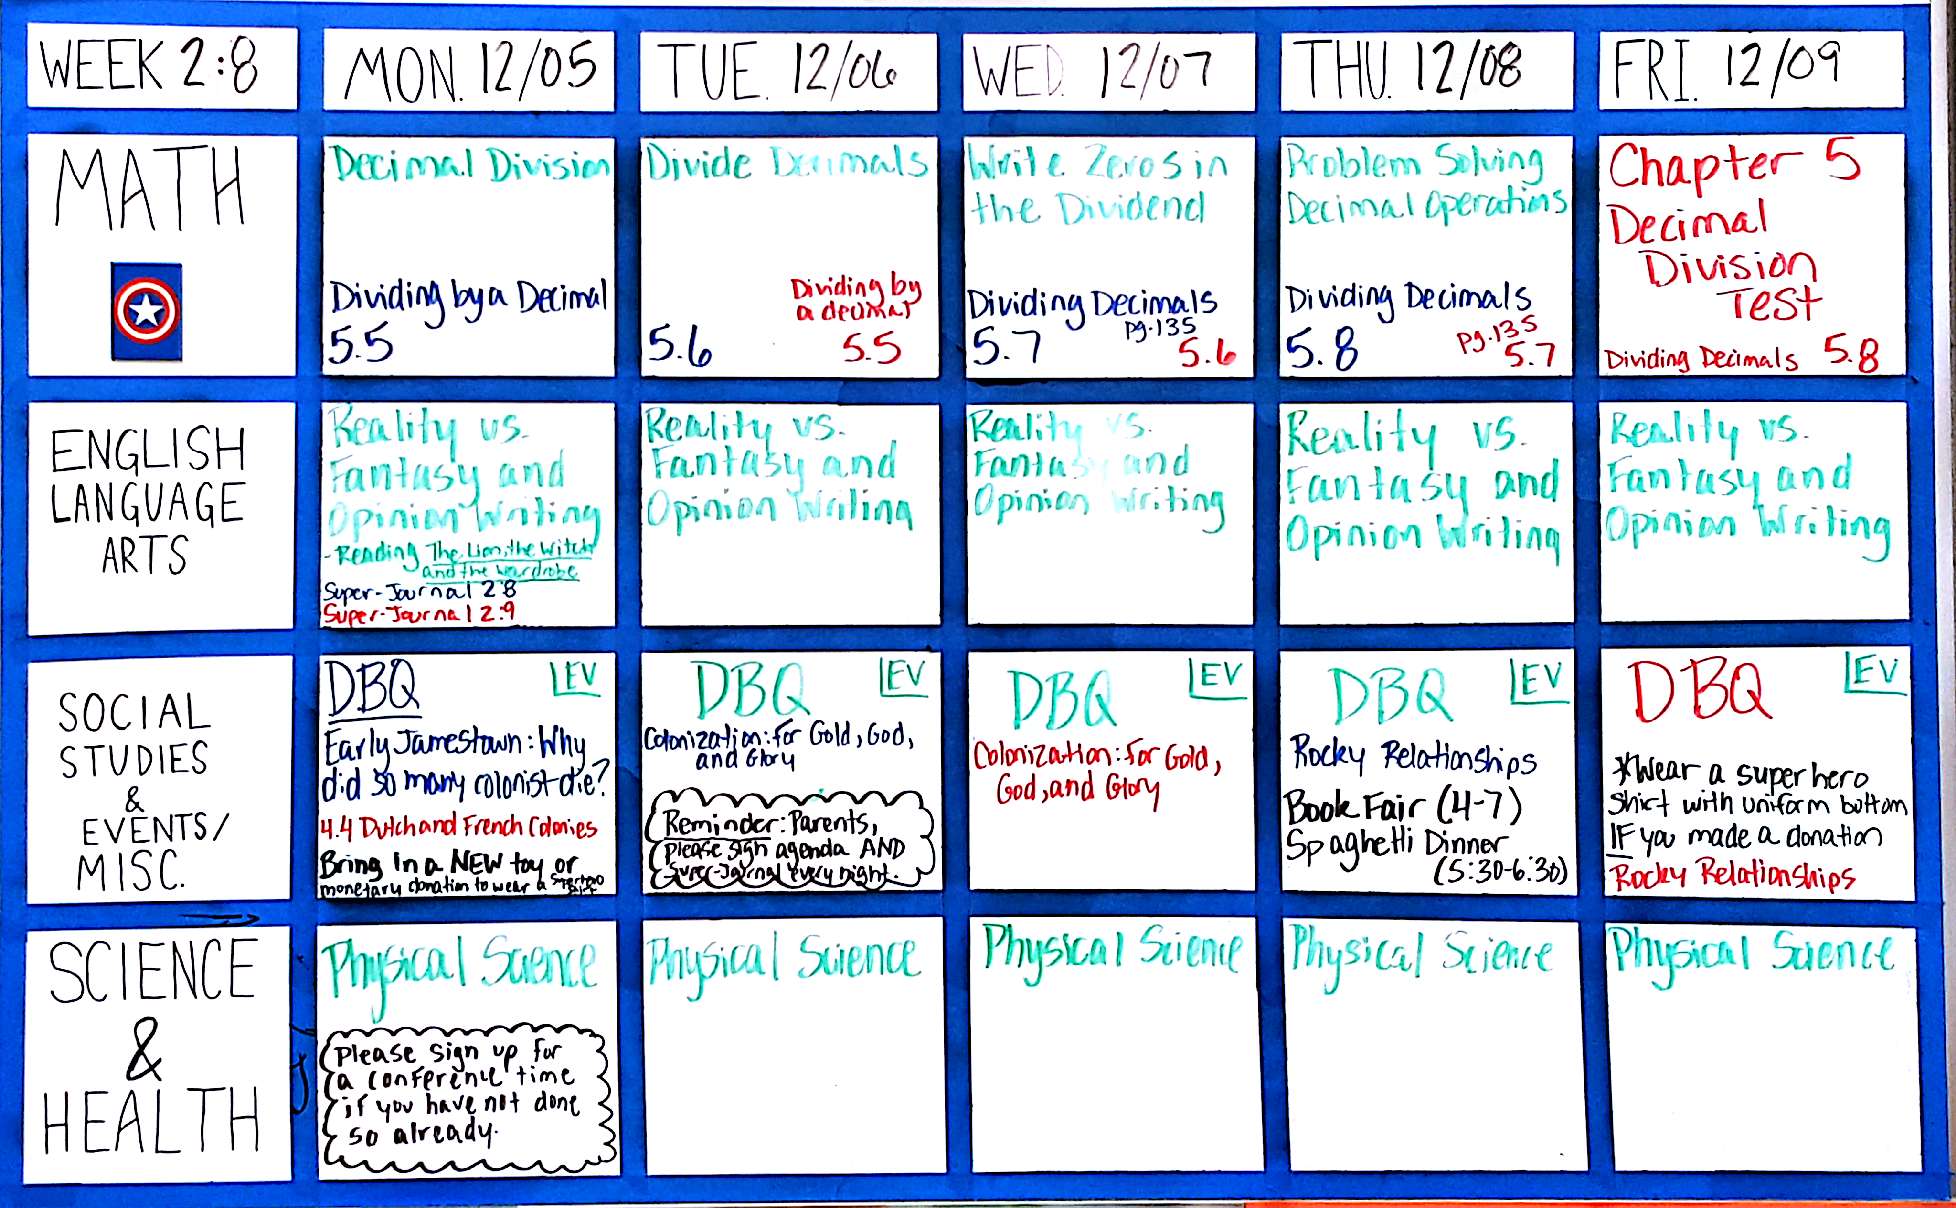 WEEK 2:8
MON. 12/05
TUE. 12/06
WED. 12/07
THU. 12/08
FRI. 12/09
MATH
Decimal Division
Dividing by a Decimal
5.5
Divide Decimals
Dividing by
a decimal
5.6
5.5
Write Zeros in
the Dividend
Dividing Decimals
pg.135
5.7
5.6
Problem Solving
Decimal Operations
Dividing Decimals
pg.135
5.8
5.7
Chapter 5
Decimal
Division
Test
Dividing Decimals 5.8
ENGLISH
LANGUAGE
ARTS
Reality vs.
Fantasy and
Opinion Writing
-Reading The Lion, the Witch
and the Wardrobe
Super-Journal 2:8
Super-Journal 2:9
Reality vs.
Fantasy and
Opinion Writing
Reality vs.
Fantasy and
Opinion Writing
Reality vs.
Fantasy and
Opinion Writing
Reality vs.
Fantasy and
Opinion Writing
SOCIAL
STUDIES
&
EVENTS/
MISC.
DBQ
LEV
Early Jamestown: Why
did so many colonist die?
4.4 Dutch and French Colonies
Bring in a NEW toy or
monetary donation to wear a
DBQ
LEV
Colonization: for Gold, God,
and Glory
Reminder: Parents,
Please sign agenda AND
Super-Journal every night.
DBQ
LEV
Colonization: for Gold,
God, and Glory
DBQ
LEV
Rocky Relationships
Book Fair (4-7)
Spaghetti Dinner
(5:30-6:30)
DBQ
LEV
*Wear a superhero
shirt with uniform bottom
IF you made a donation
Rocky Relationships
SCIENCE
&
HEALTH
Physical Science
Please sign up for
a conference time
if you have not done
so already.
Physical Science
Physical Science
Physical Science
Physical Science